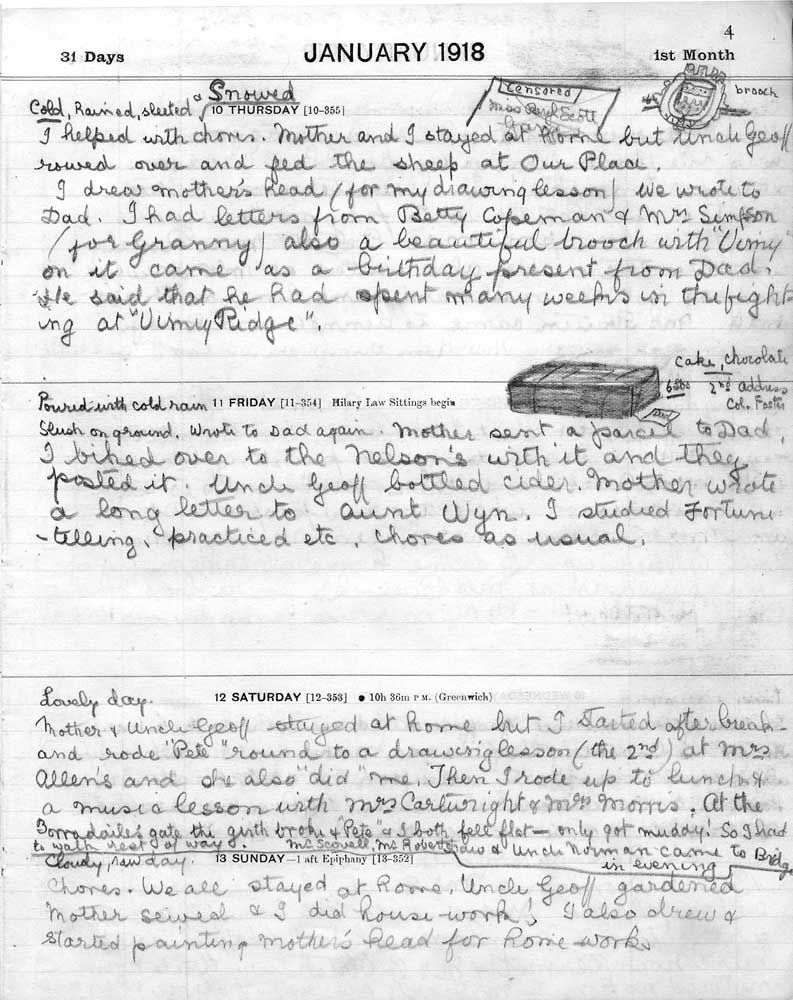 4
31 Days JANUARY 1918 1st Month
Cold, Rained, sleeted & Snowed
10 THURSDAY [10-355]
Censored
Miss Beryl Scott
brooch
I helped with chores. Mother and I stayed at home but Uncle Geoff
rowed over and fed the sheep at Our Place.
I drew mother's head (for my drawing lesson) We wrote to
Dad. I had letters from Betty Copeman & Mrs Simpson
(for Granny) also a beautiful brooch with "Vimy"
on it came as a birthday present from Dad.
He said that he had spent many weeks in the fight-
ing at "Vimy Ridge".
cake, chocolate
2nd address
Col. Foster
Poured with cold rain 11 FRIDAY [11-354] Hilary Law Sittings begin
Slush on ground. Wrote to Dad again. Mother sent a parcel to Dad,
I biked over to the Nelson's with it and they
posted it. Uncle Geoff bottled cider. Mother wrote
a long letter to Aunt Wyn. I studied Fortune
-telling, practiced etc, chores as usual.
Lovely day. 12 SATURDAY [12-353] ● 10h 36m P.M. (Greenwich)
Mother & Uncle Geoff stayed at home but I started after break-
and rode 'Pete' "round to a drawing lesson (the 2nd) at Mrs
Allen's and she also "did" me. Then I rode up to lunch &
a music lesson with Mrs Cartwright & Mrs Morris. At the
Borradaile's gate the girth broke & "Pete" & I both fell flat — only got muddy! So I had
to walk rest of way. Mr Scovell, Mr Robertshaw & Uncle Norman came to Bridge
in evening
Cloudy, raw day. 13 SUNDAY—1 aft Epiphany [13-352]
Chores. We all stayed at home, Uncle Geoff gardened
Mother sewed & I did house-work! I also drew &
started painting mother's head for home-work